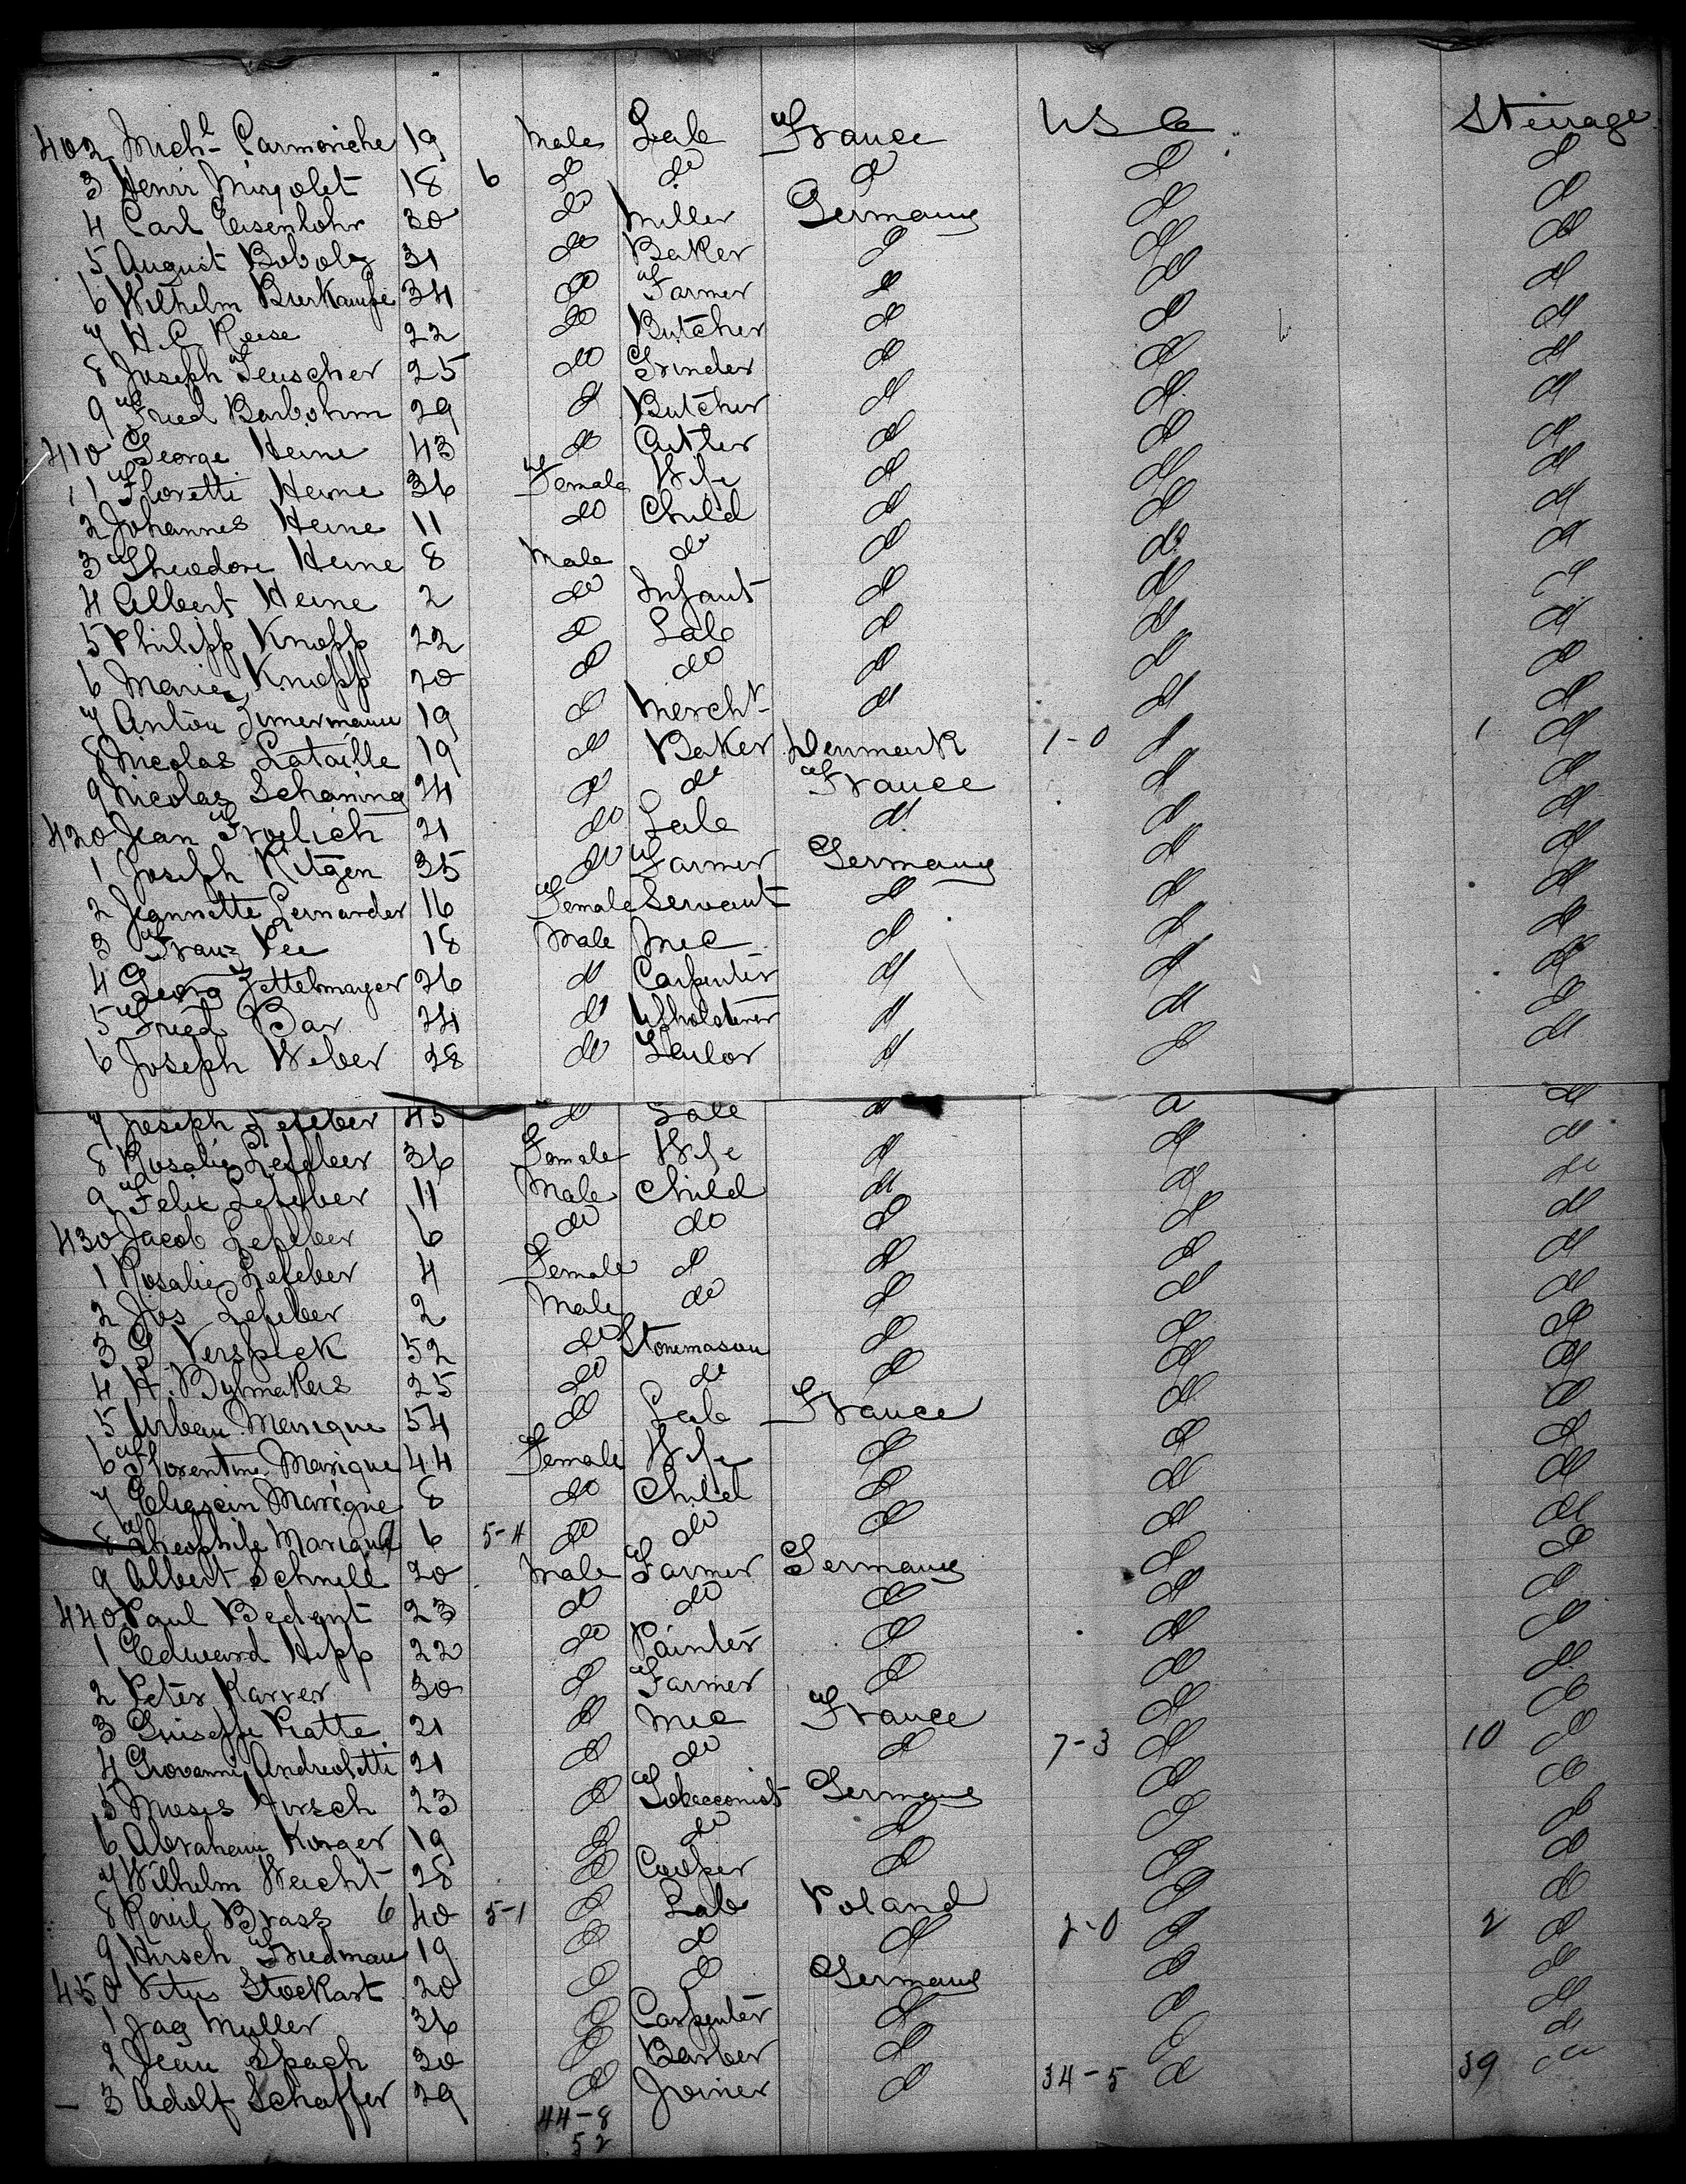 402 Mich.l Carmoriche 19 Male Lab France USA Steerage
3 Henri Mirgolet 18 6 do do do do do
4 Carl Eisenlohr 30 do Miller Germany do do
5 August Bobolz 31 do Baker do do do
6 Wilhelm 34 do Farmer do do do
7 H.C. Reese 22 do Butcher do do do
8 Joseph Teuscher 25 do Grinder do do do
9 Fried Barbohm 29 do Butcher do do do
410 George Heine 43 do Cutler do do do
11 Floretti Heine 36 Female Wife do do do
2 Johannes Heine 11 do Child do do do
3 Theodore Heine 8 Male do do do do
4 Albert Heine 2 do Infant do do do
5 Philipp Knopp 22 do Lab do do do
6 Maria Knopp 20 do do do do do
7 Anton Zimermann 19 do Mercht do do do
8 Nicolas Lataille 19 do Baker Denmark 1-0 do 1 do
9 Nicolas Schaning 24 do do France do do
420 Jean Froelich 21 do Lab do do do
1 Joseph Ritgen 35 do Farmer Germany do do
2 Jeannette Lernander 16 Female Servant do do do
3 Franz Pee 18 Male Mec do do do
4 Georg Zettelmayer 26 do Carpenter do do do
5 Fried Bar 24 do Upholsterer do do do
6 Joseph Weber 28 do Tailor do do do
7 Joseph Lefeber 45 do Lab do do do
8 Rosalie Lefeber 36 Female Wife do do do
9 Felix Lefeber 11 Male Child do do do
430 Jacob Lefeber 6 do do do do do
1 Rosalie Lefeber 4 Female do do do do
2 Jos Lefeber 2 Male do do do do
3 G Verspeck 52 do Stonemason do do do
4 H. Bylmakers 25 do do do do do
5 Urban Marique 54 do Lab France do do
6 Florentine Marique 44 Female Wife do do do
7 Marique 8 do Child do do do
8 Theophile Marique 6 5-4 do do do do do
9 Albert Schnell 20 Male Farmer Germany do do
440 Paul 23 do do do do do
1 Edward Hipp 22 do Painter do do do
2 Peter Karrer 30 do Farmer do do do
3 Guiseppe Piatte 21 do Mec France do do
4 Giovanni Andreoletti 21 do do do 7-3 do 10 do
5 Moses Hirsch 23 do Tobacconist Germany do do
6 Abraham Korger 19 do do do do do
7 Wilhelm Weicht 28 do Cooper do do do
8 Brass 6 40 5-1 do Lab Poland do do
9 Hirsch Friedman 19 do do do 2-0 do 2 do
450 Vitus Stockart 20 do do Germany do do
1 Jag Muller 36 do Carpenter do do do
2 Jean Spach 30 do Barber do do do
3 Adolf Schaffer 29 do Joiner do 34-5 do 39 do
44-8
52